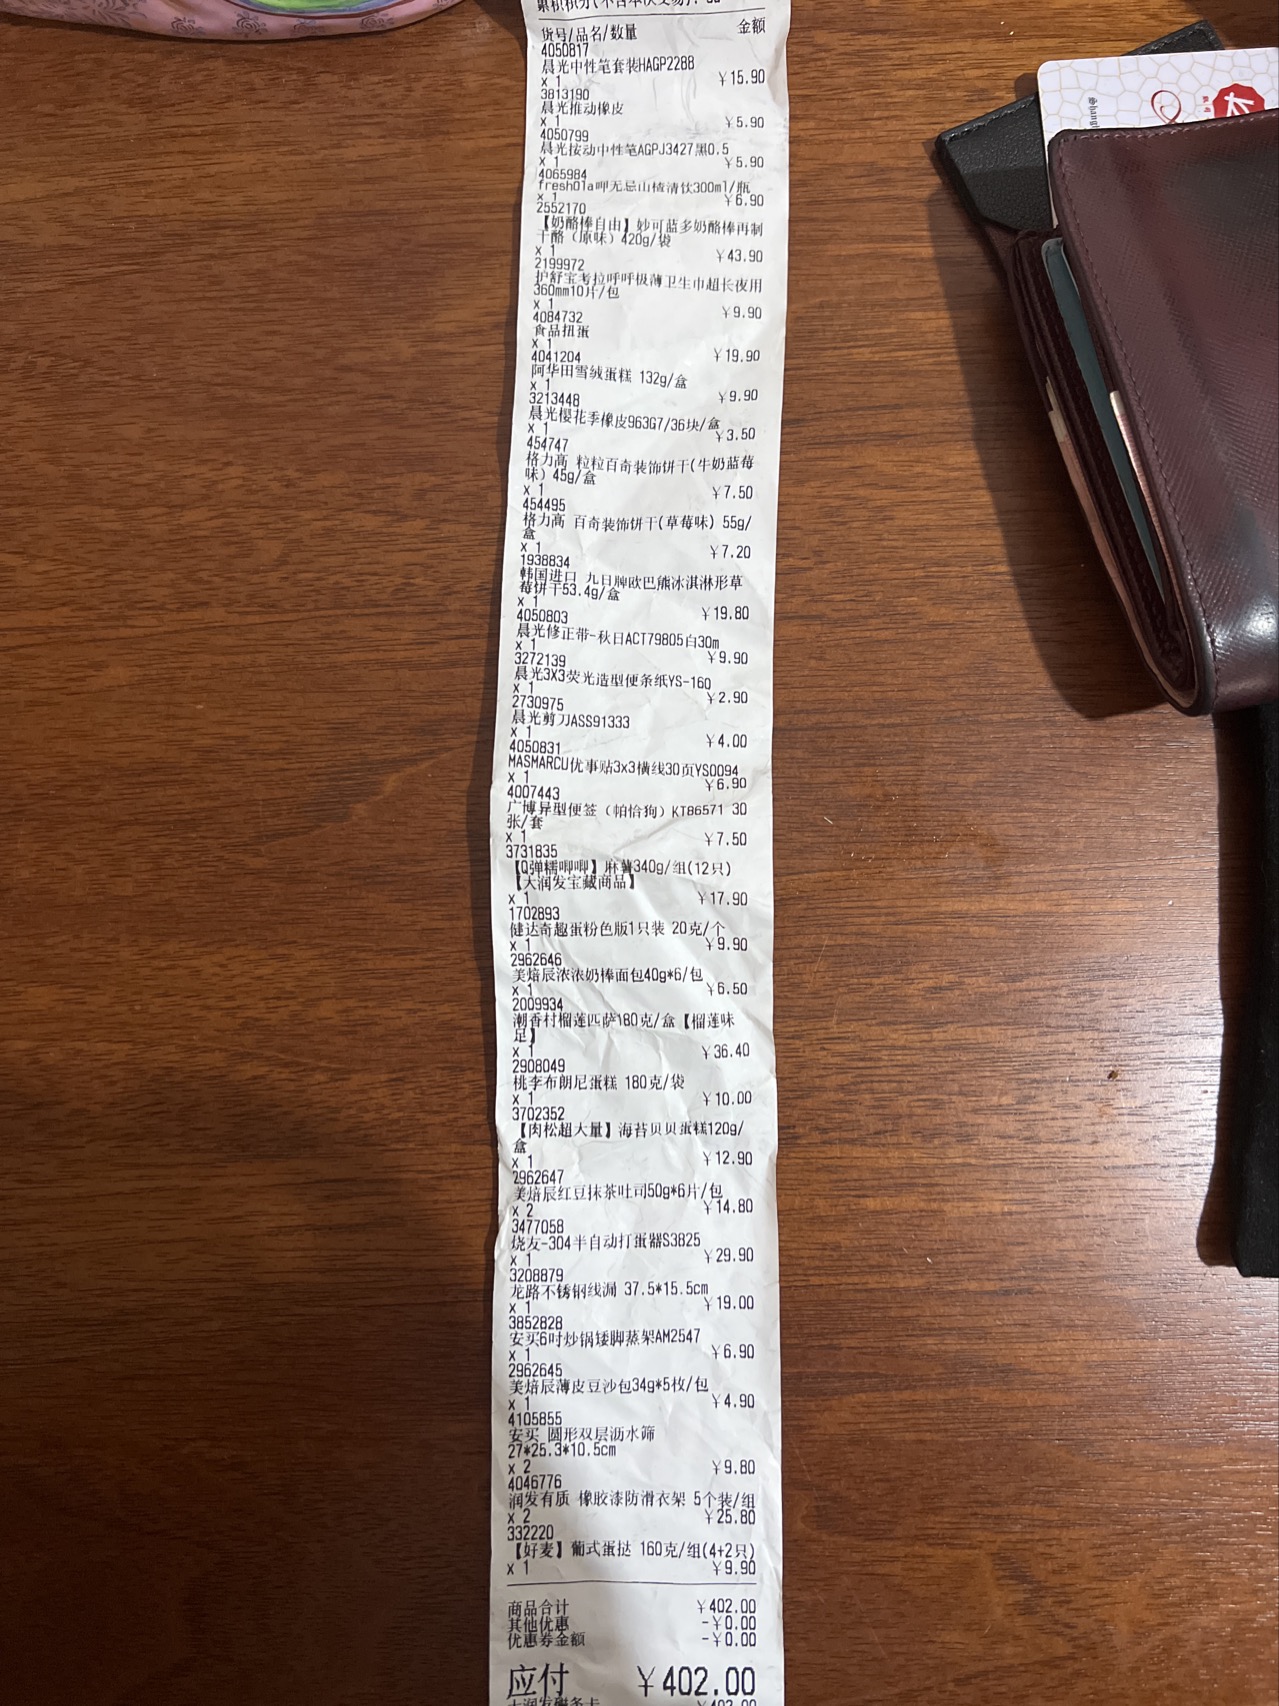 货号/品名/数量 金额
4050817
晨光中性笔套装HAGP2288
x 1 ￥15.90
3813190
晨光推动橡皮
x 1 ￥5.90
4050799
晨光按动中性笔AGPJ3427黑0.5
x 1 ￥5.90
4065984
fresh01a呷无忌山楂清饮300ml/瓶
x 1 ￥6.90
2552170
【奶酪棒自由】妙可蓝多奶酪棒再制
干酪（原味）420g/袋
x 1 ￥43.90
2199972
护舒宝考拉呼呼极薄卫生巾超长夜用
360mm10片/包
x 1 ￥9.90
4084732
食品扭蛋
x 1 ￥19.90
4041204
阿华田雪绒蛋糕 132g/盒
x 1 ￥9.90
3213448
晨光樱花季橡皮963G7/36块/盒
x 1 ￥3.50
454747
格力高 粒粒百奇装饰饼干(牛奶蓝莓
味）45g/盒
x 1 ￥7.50
454495
格力高 百奇装饰饼干(草莓味) 55g/
盒
x 1 ￥7.20
1938834
韩国进口 九日牌欧巴熊冰淇淋形草
莓饼干53.4g/盒
x 1 ￥19.80
4050803
晨光修正带-秋日ACT79805白30m
x 1 ￥9.90
3272139
晨光3X3荧光造型便条纸YS-160
x 1 ￥2.90
2730975
晨光剪刀ASS91333
x 1 ￥4.00
4050831
MASMARCU优事贴3x3横线30页YS0094
x 1 ￥6.90
4007443
广博异型便签（帕恰狗）KT86571 30
张/套
x 1 ￥7.50
3731835
【Q弹糯唧唧】麻薯340g/组(12只)
【大润发宝藏商品】
x 1 ￥17.90
1702893
健达奇趣蛋粉色版1只装 20克/个
x 1 ￥9.90
2962646
美焙辰浓浓奶棒面包40g*6/包
x 1 ￥6.50
2009934
潮香村榴莲匹萨180克/盒【榴莲味
足】
x 1 ￥36.40
2908049
桃李布朗尼蛋糕 180克/袋
x 1 ￥10.00
3702352
【肉松超大量】海苔贝贝蛋糕120g/
盒
x 1 ￥12.90
2962647
美焙辰红豆抹茶吐司50g*6片/包
x 2 ￥14.80
3477058
烧友-304半自动打蛋器S3825
x 1 ￥29.90
3208879
龙路不锈钢线漏 37.5*15.5cm
x 1 ￥19.00
3852828
安买6吋炒锅矮脚蒸架AM2547
x 1 ￥6.90
2962645
美焙辰薄皮豆沙包34g*5枚/包
x 1 ￥4.90
4105855
安买 圆形双层沥水筛
27*25.3*10.5cm
x 2 ￥9.80
4046776
润发有质 橡胶漆防滑衣架 5个装/组
x 2 ￥25.80
332220
【好麦】葡式蛋挞 160克/组(4+2只)
x 1 ￥9.90
商品合计 ￥402.00
其他优惠 -￥0.00
优惠券金额 -￥0.00
应付 ￥402.00